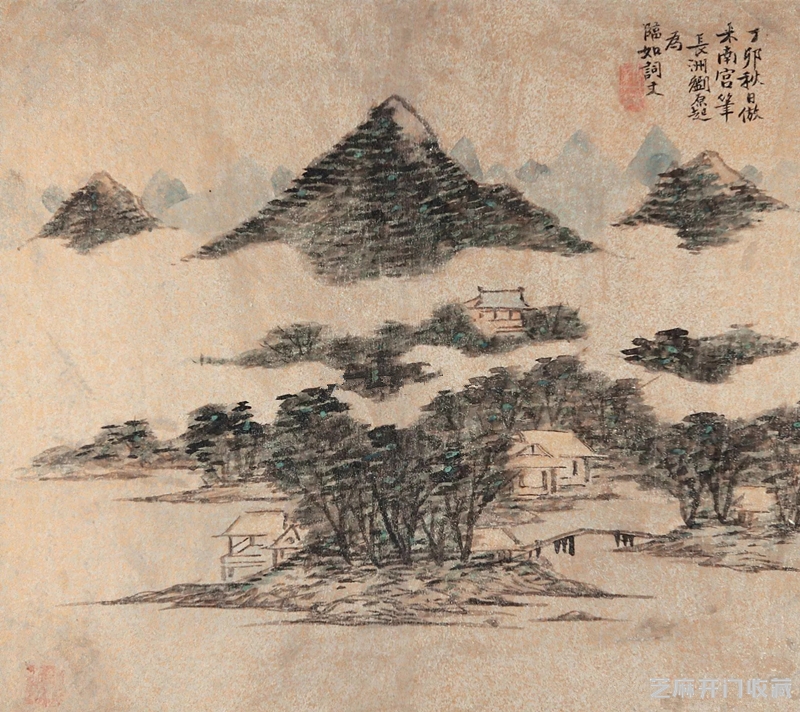 丁卯秋日倣
米南宫筆
長洲劉原起
為
臨如詞丈
芝麻开门收藏